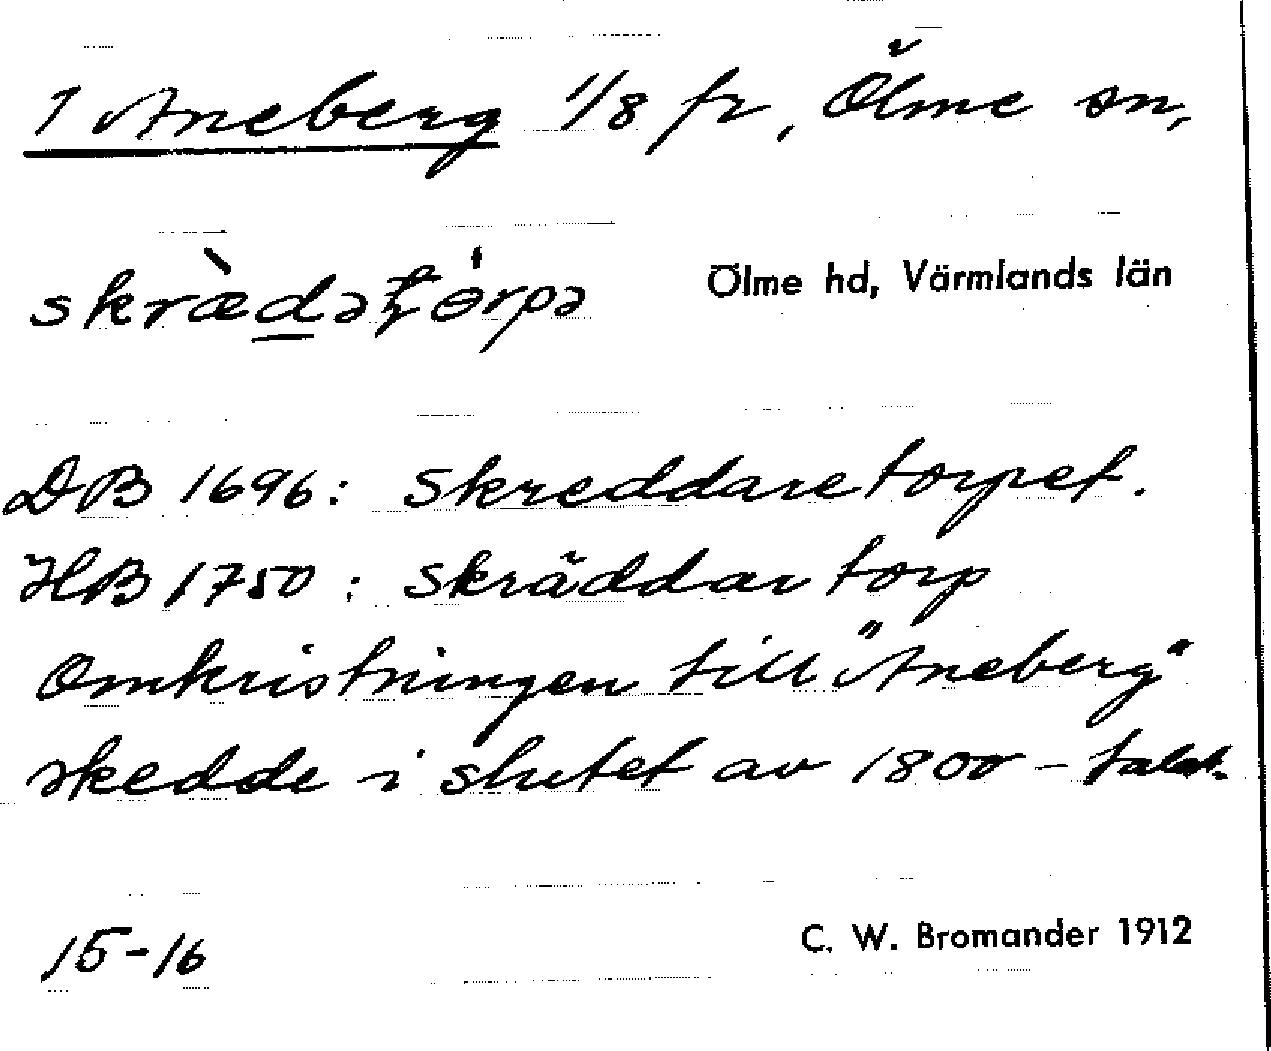 1 Aneberg 1/8 fr, Ölme sn,
skrædatorpa Ölme hd, Värmlands län
DB 1696: Skreddaretorpet.
HB 1750: Skräddartorp
Omkristningen till "Aneberg"
skedde i slutet av 1800-talet.
15-16 C. W. Bromander 1912